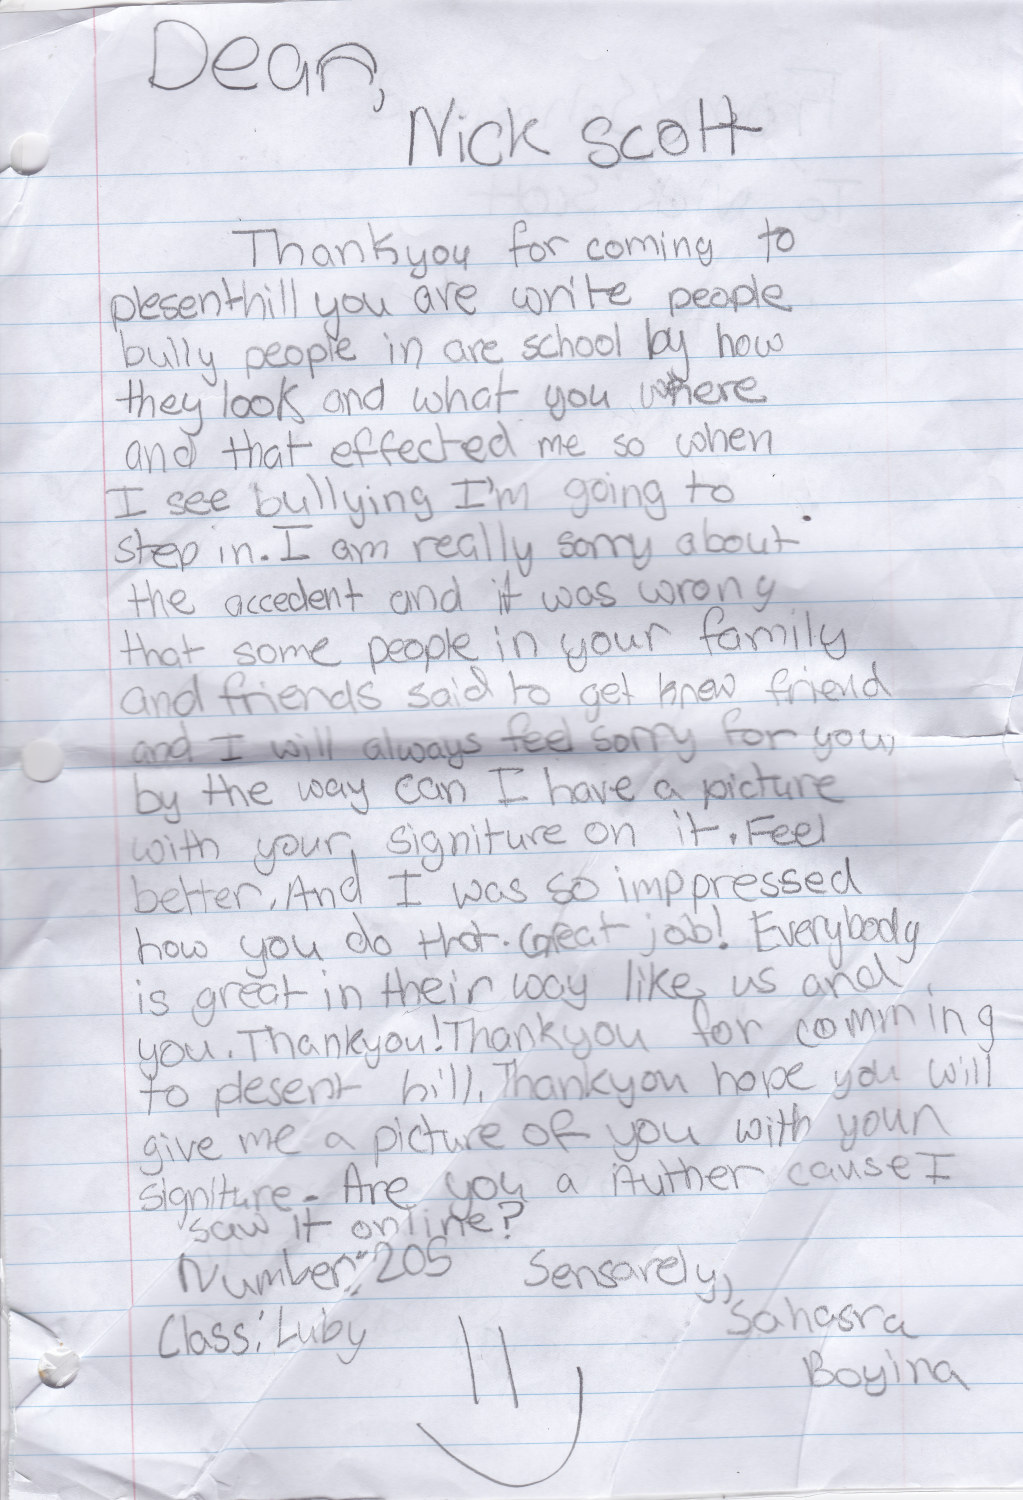 Dear,
Nick Scott
Thankyou for coming to
plesenthill you are write people
bully people in are school by how
they look and what you where
and that effected me so when
I see bullying I'm going to
step in. I am really sorry about
the accedent and it was wrong
that some people in your family
and friends said to get knew friend
and I will always feel sorry for you,
by the way can I have a picture
with your, signiture on it. Feel
better. And I was so imppressed
how you do that. Great job! Everybody
is great in their way like us and
you. Thankyou! Thankyou for comming
to plesent hill. Thankyou hope you will
give me a picture of you with your
signiture. Are you a Auther cause I
saw it online?
Number: 205 Sensarely,
Class: Luby Sahasra
Boyina